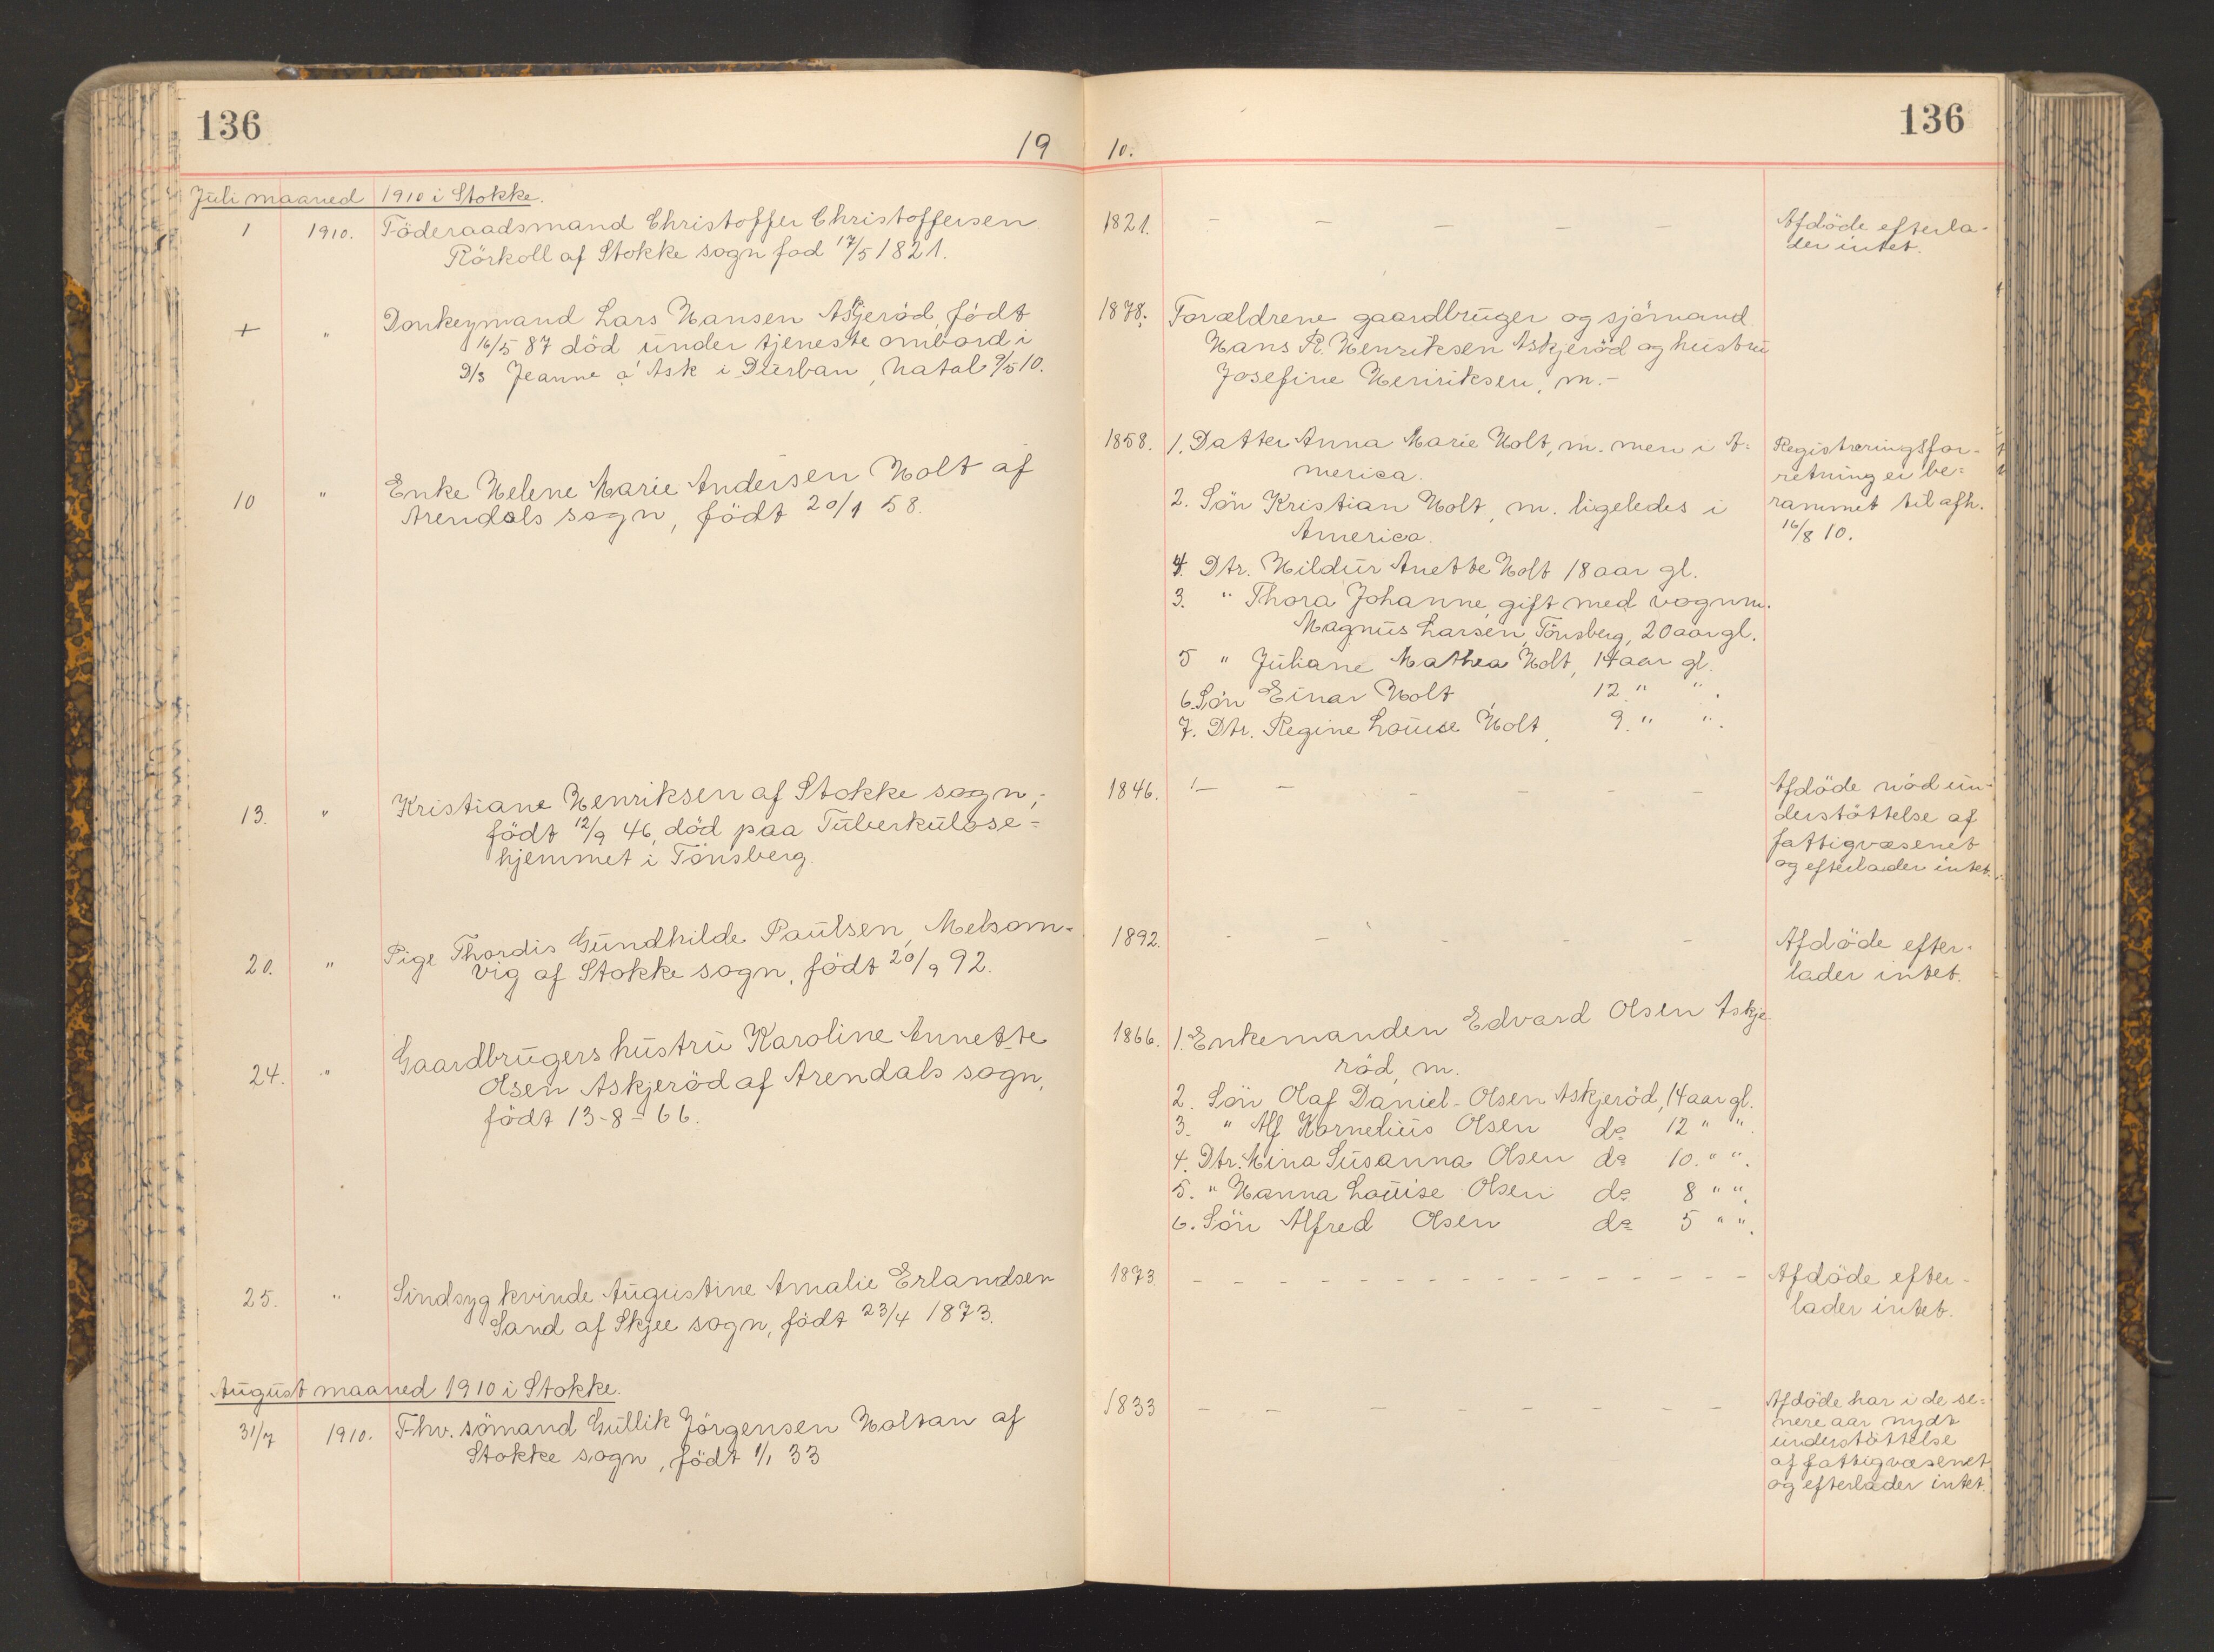 136
136
19 10.
Juli maaned 1910 i Stokke.
1 1910. Föderaadsmand Christoffer Christoffersen
Rörkoll af Stokke sogn fød 17/5 1821.
1821. - - - - -
Afdöde efterla-
der intet.
+ " Donkeymand Lars Hansen Askjeröd, födt
16/5 87 död under tjeneste ombord i
D/S Jeanne a' Ask i Durban, Natal 9/5 10.
1878. Forældrene gaardbruger og sjömand
Hans R. Henriksen Askjeröd og hustru
Josefine Henriksen, m.-
10 " Enke Helene Marie Andersen Holt af
Arendals sogn, födt 20/1 58.
1858. 1. Datter Anna Marie Holt, m. men i A-
merica.
2. Sön Kristian Holt, m. ligeledes i
America.
4. Dtr. Hildur Anette Holt 18 aar gl.
3. " Thora Johanne, gift med vognm.
Magnus Larsen, Tönsberg, 20 aar gl.
5 " Juliane Mathea Holt, 14 aar gl.
6. Sön Einar Holt 12 " ".
7. Dtr. Regine Louise Holt, 9. " ".
Registreringsfor-
retning ei be-
rammet til afh.
16/8 10.
13. " Kristiane Henriksen af Stokke sogn,
födt 12/9 46, död paa Tuberkulose-
hjemmet i Tönsberg.
1846. - - - - - -
Afdöde nöd un-
derstöttelse af
fattigvæsenet
og efterlader intet.
20. " Pige Thordis Gundhilde Paulsen, Melsom-
vig af Stokke sogn, födt 20/9 92.
1892. - - - - -
Afdöde efter-
lader intet.
24. " Gaardbrugers hustru Karoline Annette
Olsen Askjeröd af Arendals sogn,
födt 13-8-66.
1866. 1. Enkemanden Edvard Olsen Askje-
röd, m.
2. Sön Olaf Daniel Olsen Askjeröd, 14 aar gl.
3. " Alf Kornelius Olsen do 12 " ".
4. Dtr. Mina Susanna Olsen do 10. " ".
5. " Hanna Louise Olsen do 8 " ".
6. Sön Alfred Olsen do 5 " ".
25. " Sindsyg kvinde Augustine Amalie Erlandsen
Sand af Skjee sogn, födt 23/4 1873.
1873 - - - - - - - - - - - - - - - -
Afdöde efter-
lader intet.
August maaned 1910 i Stokke.
31/7 1910. Fhv. sömand Gullik Jörgensen Holtan af
Stokke sogn, födt 1/1 33
1833 - - - - - - - -
Afdöde har i de se-
nere aar nydt
understöttelse
af fattigvæsenet
og efterlader intet.